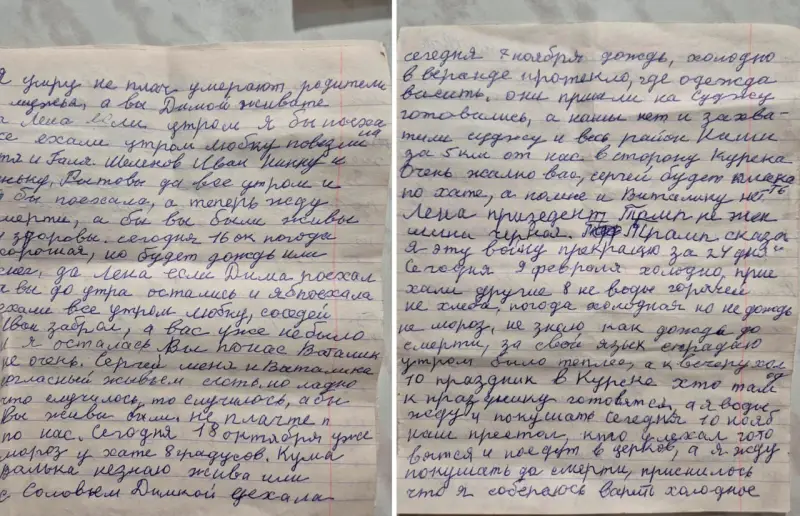 я умру не плач умерают родители
мужья, а вы Димой живите
а Лена если утром я бы поеха
все ехали утром любку повезли
тя и Галя Шеленов Иван нинку и
ньку, Вытовы да все утром и
я бы поехала, а теперь жду
смерти, а бы вы были живы
и здоровы. сегодня 16 ок погода
хорошая, но будет дождь или
снег, да Лена если Дима поехал
а вы до утра остались и я б поехала
ехали все утром любку, соседей
Иван забрал, а вас уже небыло
и я осталась Вы по нас Виталик
не очень. Сергей меня и Виталика
согласный живьем сесть, но ладно
что случилось, то случилось, абы
Вы живы были. не плачте п
по нас. Сегодня 18 октября уже
мороз у хате 8 градусов. Кума
Валька незнаю жива или
с Соловьем Димкой уехала
сегодня 7 ноября дождь, холодно
в веранде протекло, где одежда
висить. они пришли на Суджу
готовились, а наших нет и захва-
тили суджу и весь район Наши
за 5 км от нас в сторону Курска
Очень жално вас, сергей будет плака
ть
по хате, а по мне и Виталику нет
Лена президент Трамп не жен
шина черная. Трамп сказа
я эту войну прекращю за 24 дня"
Сегодня 9 февроля холодно, прие
хали другие 8 не воды горячей
не хлеба, погода холодная но не дождь
не мороз, не знаю как дожить до
смерти, за свой язык страдаю
утром было теплее, а к вечеру хол
од
10 праздник в Курске хто там
к празднику готовятся, а я воды
жду и покушать Сегодня 10 нояб
наш престол, кто уехал гото
вятся и поедут в церков, а я жду
покушать да смерти, приснилось
что я собераюсь варить холодное